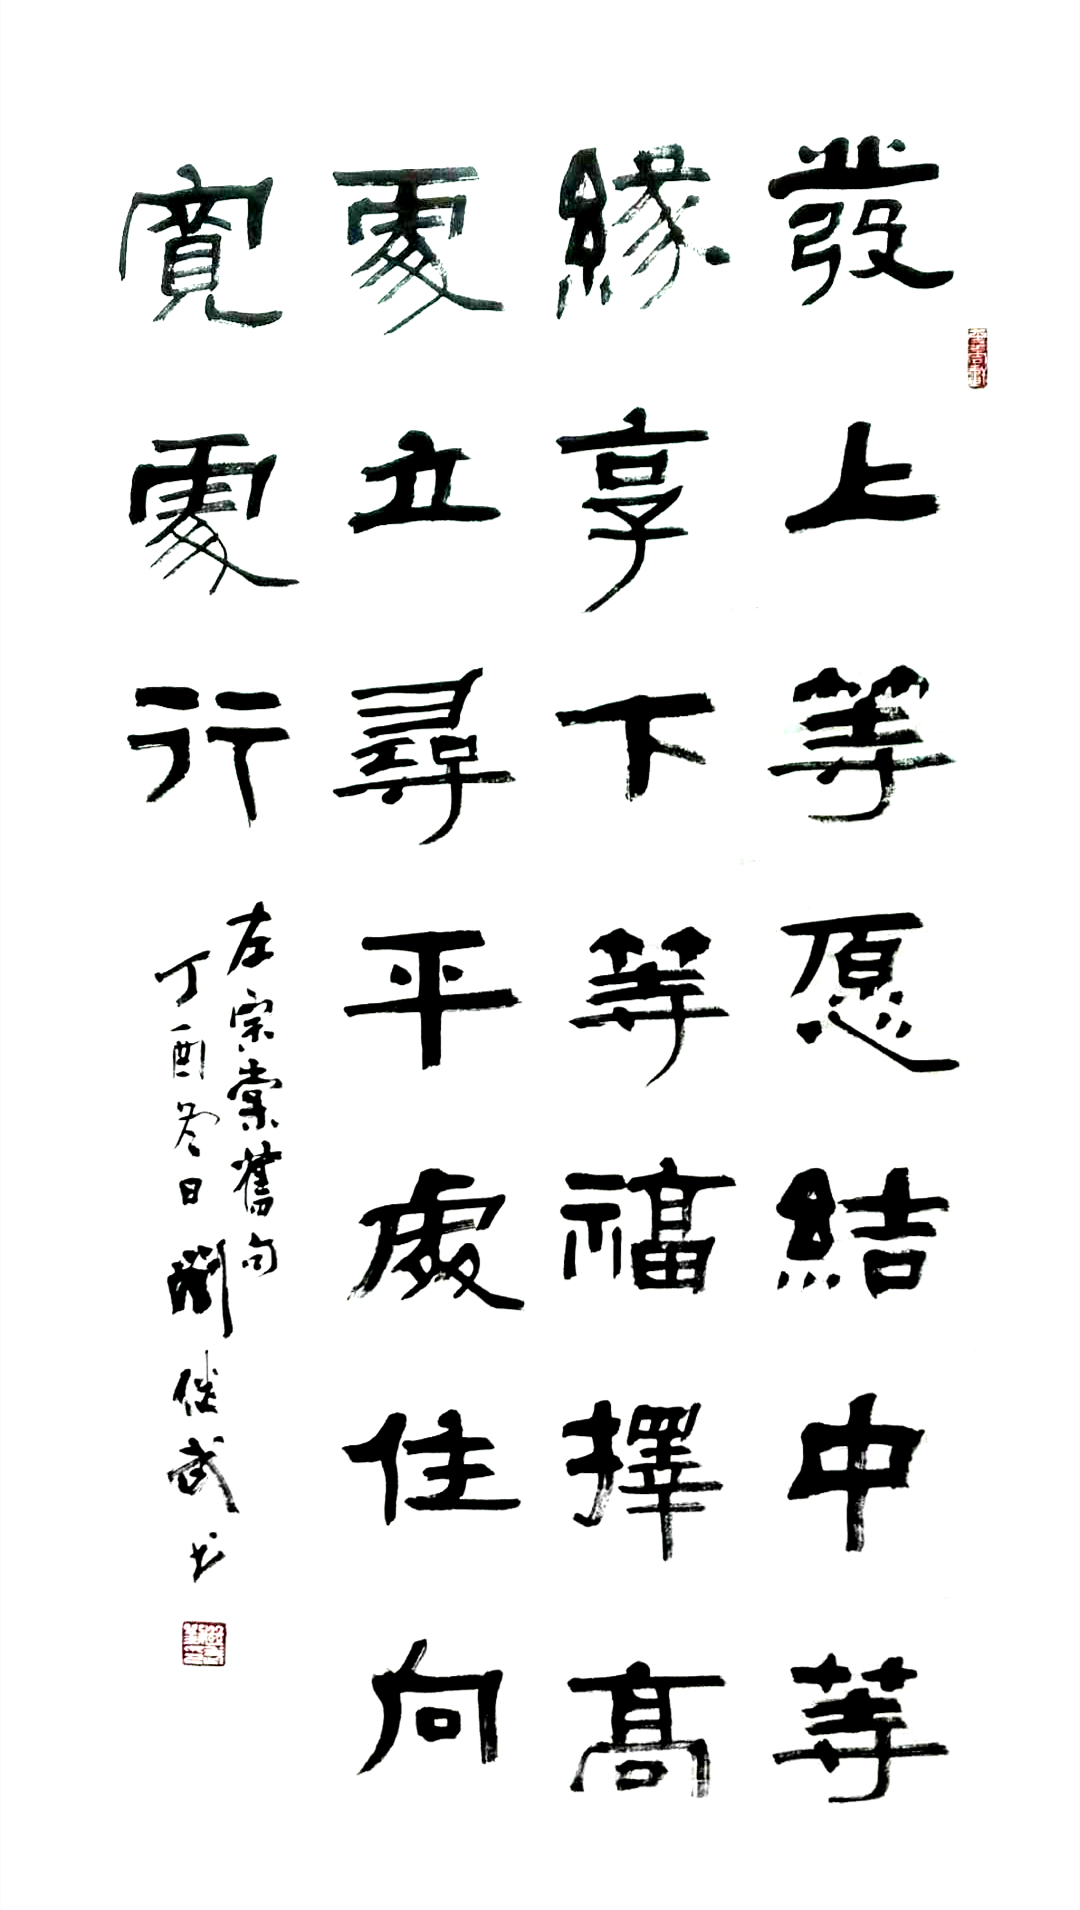 發上等愿結中等
緣享下等福擇高
處立尋平處住向
寬處行
左宗棠舊句
丁酉冬日劉继武书